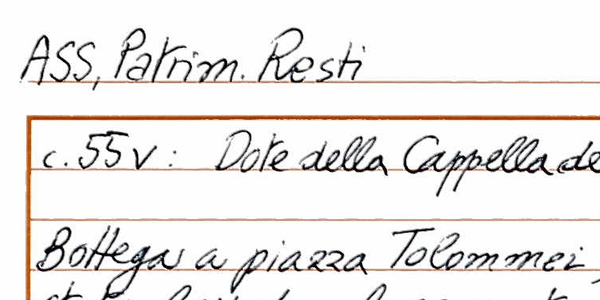 ASS, Patrim. Resti
c. 55v: Dote della Cappella de
Bottega a piazza Tolommei,